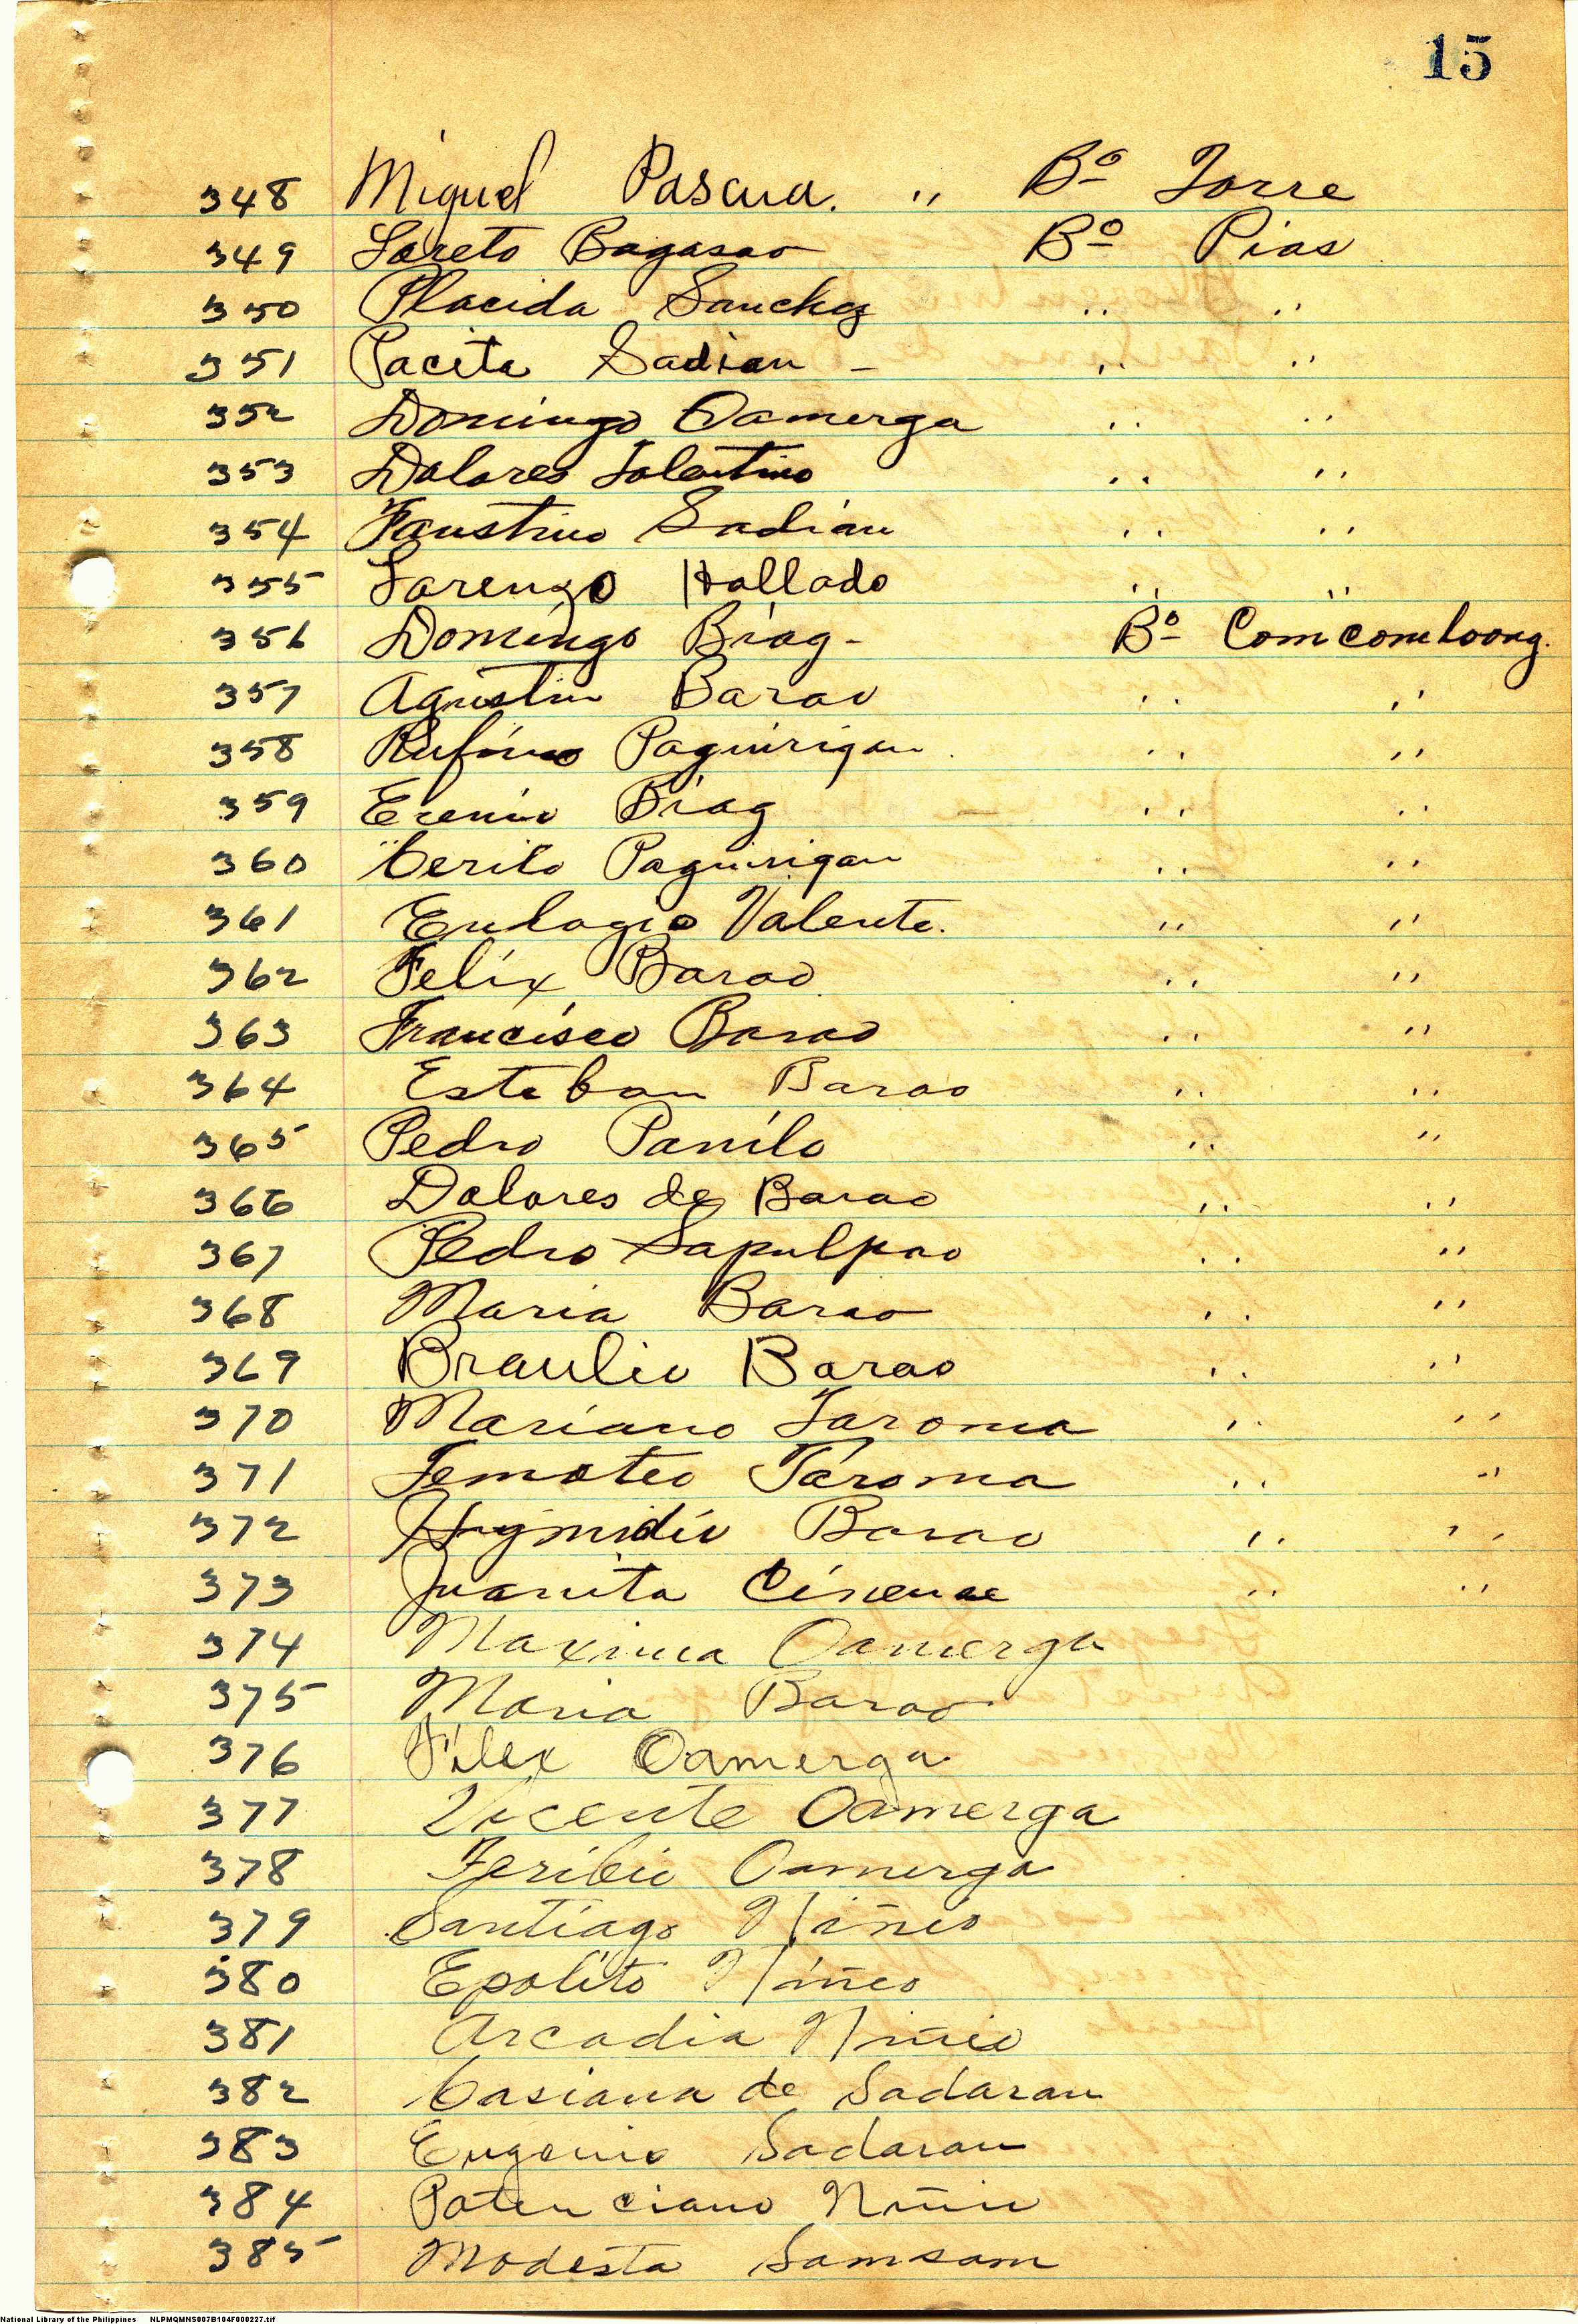 15
348 Miguel Pascua. " Bº Torre
349 Loreto Bagasao Bº Pias
350 Placida Sanchez " "
351 Pacita Sadian - " "
352 Domingo Oamerga " "
353 Dolores Tolentino " "
354 Faustino Sadian " "
355 Lorenzo Hallado " "
356 Domingo Biag - Bº Comcomloong.
357 Agustin Barao " "
358 Rufino Paguirigan " "
359 Erenio Biag " "
360 Cerilo Paguirigan " "
361 Eulogio Valente. " "
362 Felix Barao " "
363 Francisco Barao " "
364 Esteban Barao " "
365 Pedro Panilo " "
366 Dolores de Barao " "
367 Pedro Sapulpao " "
368 Maria Barao " "
369 Braulio Barao " "
370 Mariano Taroma " "
371 Temoteo Taroma " "
372 Barao " "
373 Juanita " "
374 Maxima Oamerga
375 Maria Barao
376 Filex Oamerga
377 Vicente Oamerga
378 Oamerga
379 Santiago Niñeo
380 Epolito Niñeo
381 Arcadia Niñio
382 Casiana de Sadaran
383 Eugenio Sadaran
384 Potenciano Niñio
385 Modesta Samsam
National Library of the Philippines NLPMQMNS007B104F000227.tif